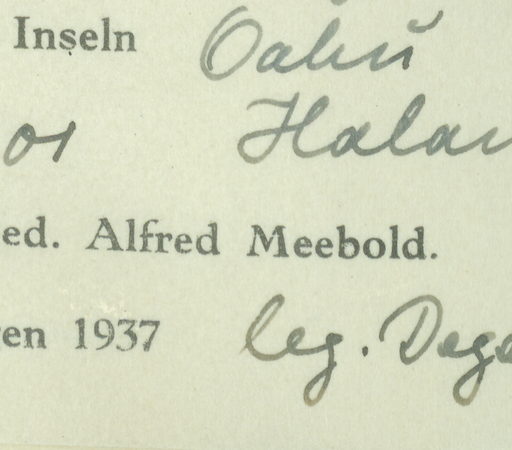 Inseln Oahu
Halaw
ed. Alfred Meebold.
en 1937 leg. Dege